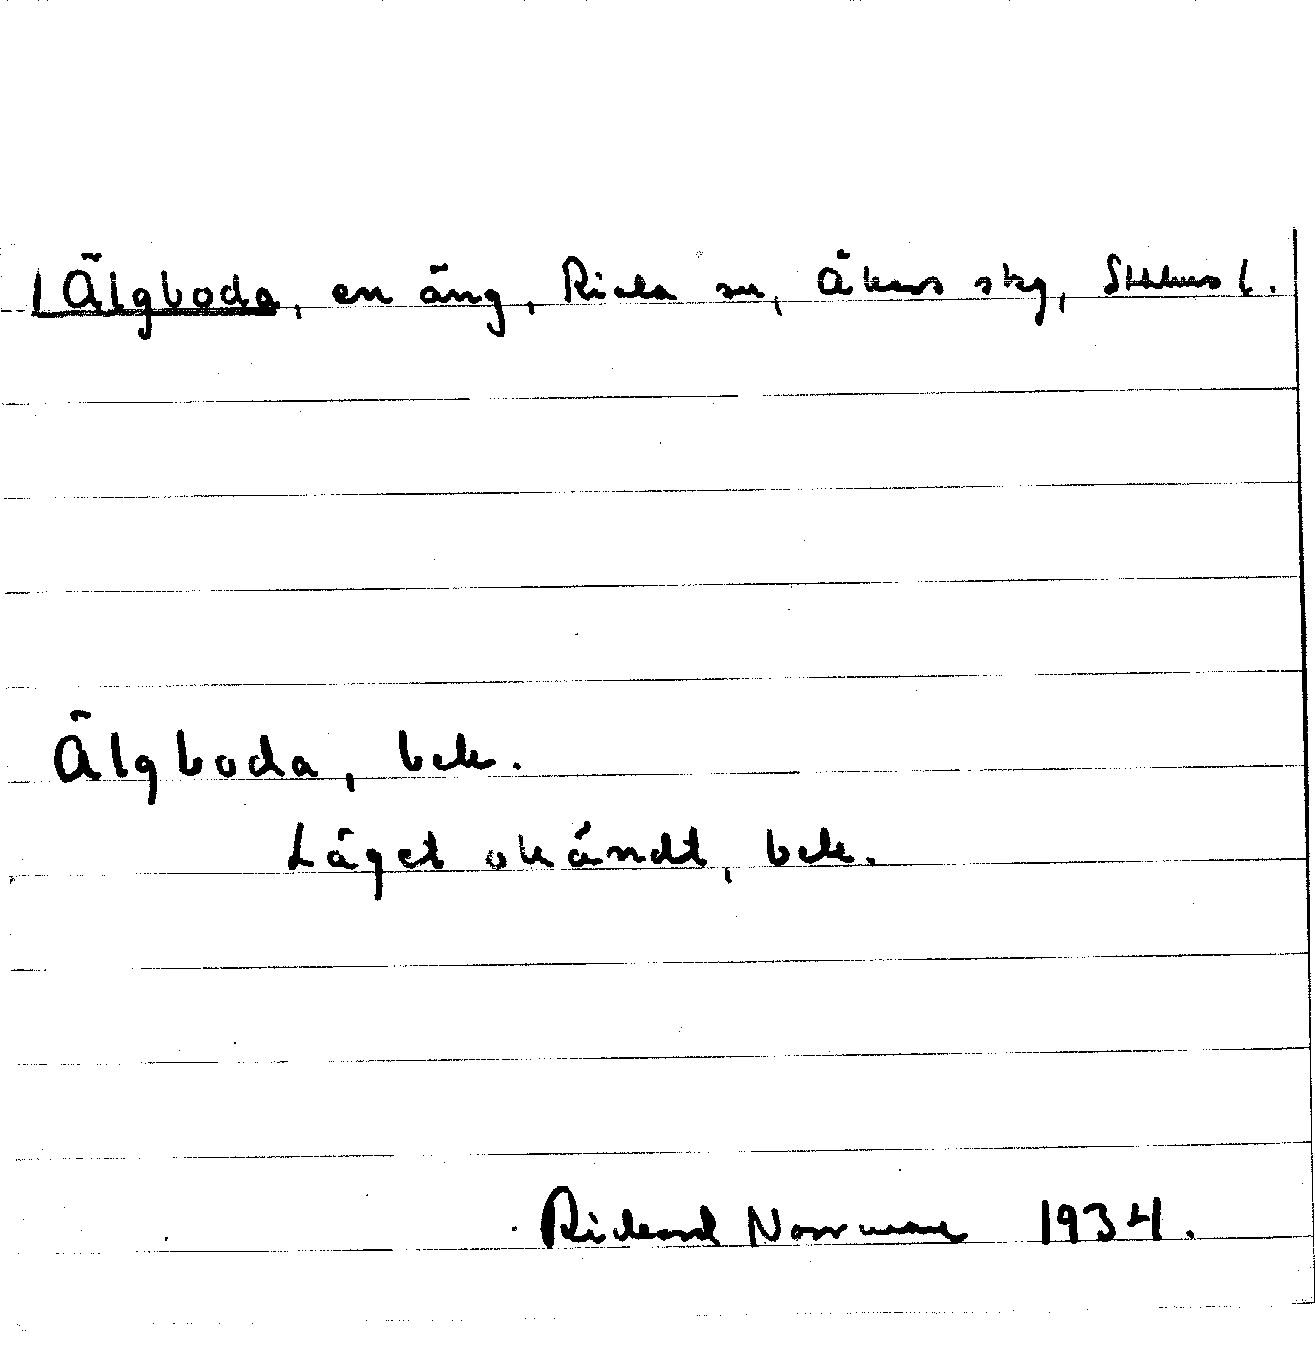 Älgboda, en äng, Riala sn, Åkers skg, Sthlms l.
Älgboda, bek.
Läget okändt, bek.
Rickard Norrman 1934.